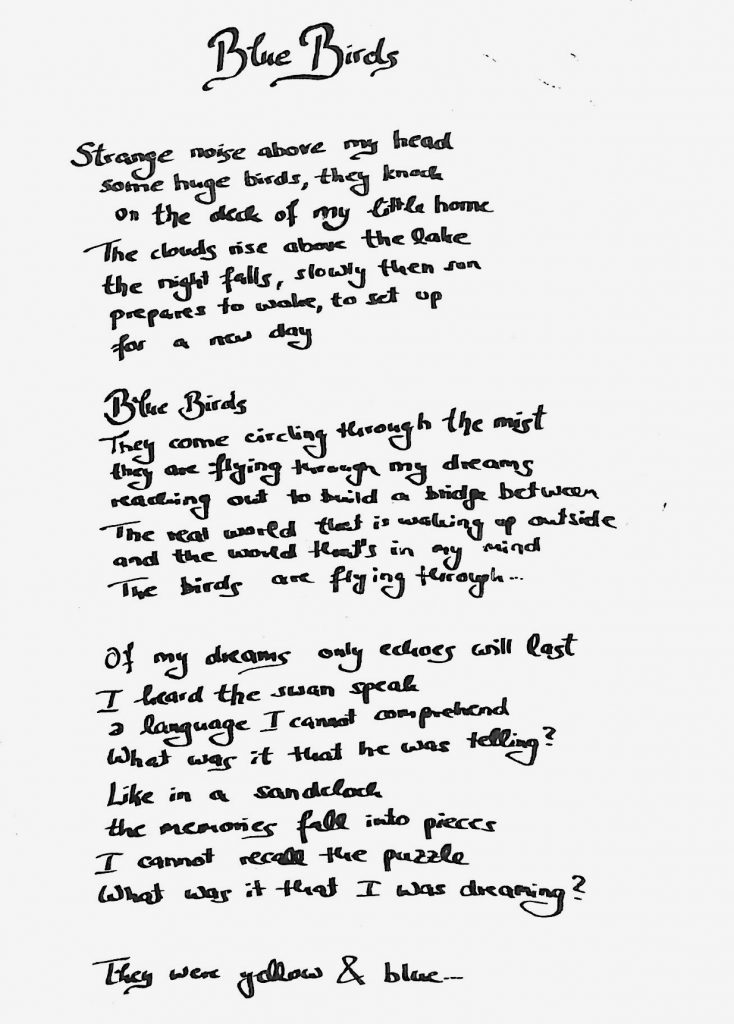 Blue Birds
Strange noise above my head
some huge birds, they knock
on the deck of my little home
The clouds rise above the lake
the night falls, slowly then sun
prepares to wake, to set up
for a new day
Blue Birds
They come circling through the mist
they are flying through my dreams
reaching out to build a bridge between
The real world that is waking up outside
and the world that's in my mind
The birds are flying through...
Of my dreams only echoes will last
I heard the swan speak
a language I cannot comprehend
What was it that he was telling?
Like in a sandclock
the memories fall into pieces
I cannot recall the puzzle
What was it that I was dreaming?
They were yellow & blue...